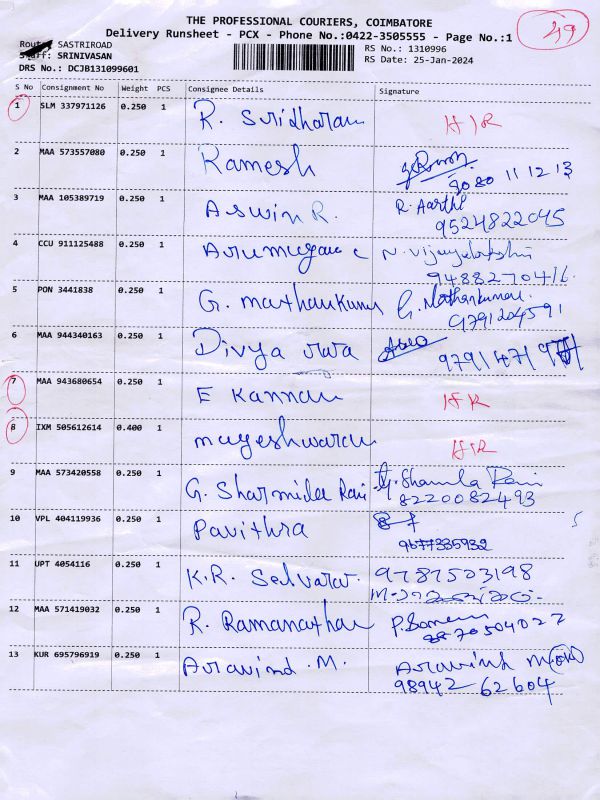 THE PROFESSIONAL COURIERS, COIMBATORE
Delivery Runsheet - PCX - Phone No.:0422-3505555 - Page No.:1
49
Route: SASTRIROAD
Staff: SRINIVASAN
DRS No.: DCJB131099601
RS No.: 1310996
RS Date: 25-Jan-2024
S No Consignment No Weight PCS Consignee Details Signature
1 SLM 337971126 0.250 1 R. Sridharan H/R
2 MAA 573557080 0.250 1 Ramesh
8080 11 12 13
3 MAA 105389719 0.250 1 Aswin R. R. Aarthi
9524822045
4 CCU 911125488 0.250 1 Arumugam c N. Vijayalakshmi
9488270416.
5 PON 3441838 0.250 1 G. Mathankumar G. Mathankumar.
9791204591
6 MAA 944340163 0.250 1 Divya
7 MAA 943680654 0.250 1 E Kannan H R
8 IXM 505612614 0.400 1 mageshwaran H/R
9 MAA 573420558 0.250 1 G. Sharmila Rani G. Shamila Rani
8220082493
10 VPL 404119936 0.250 1 Pavithra
9677335932
11 UPT 4054116 0.250 1 K.R. Selvaraj. 9787503198
12 MAA 571419032 0.250 1 R. Ramanathan
13 KUR 695796919 0.250 1 Aravind .M. Aravind M.
98942 62604